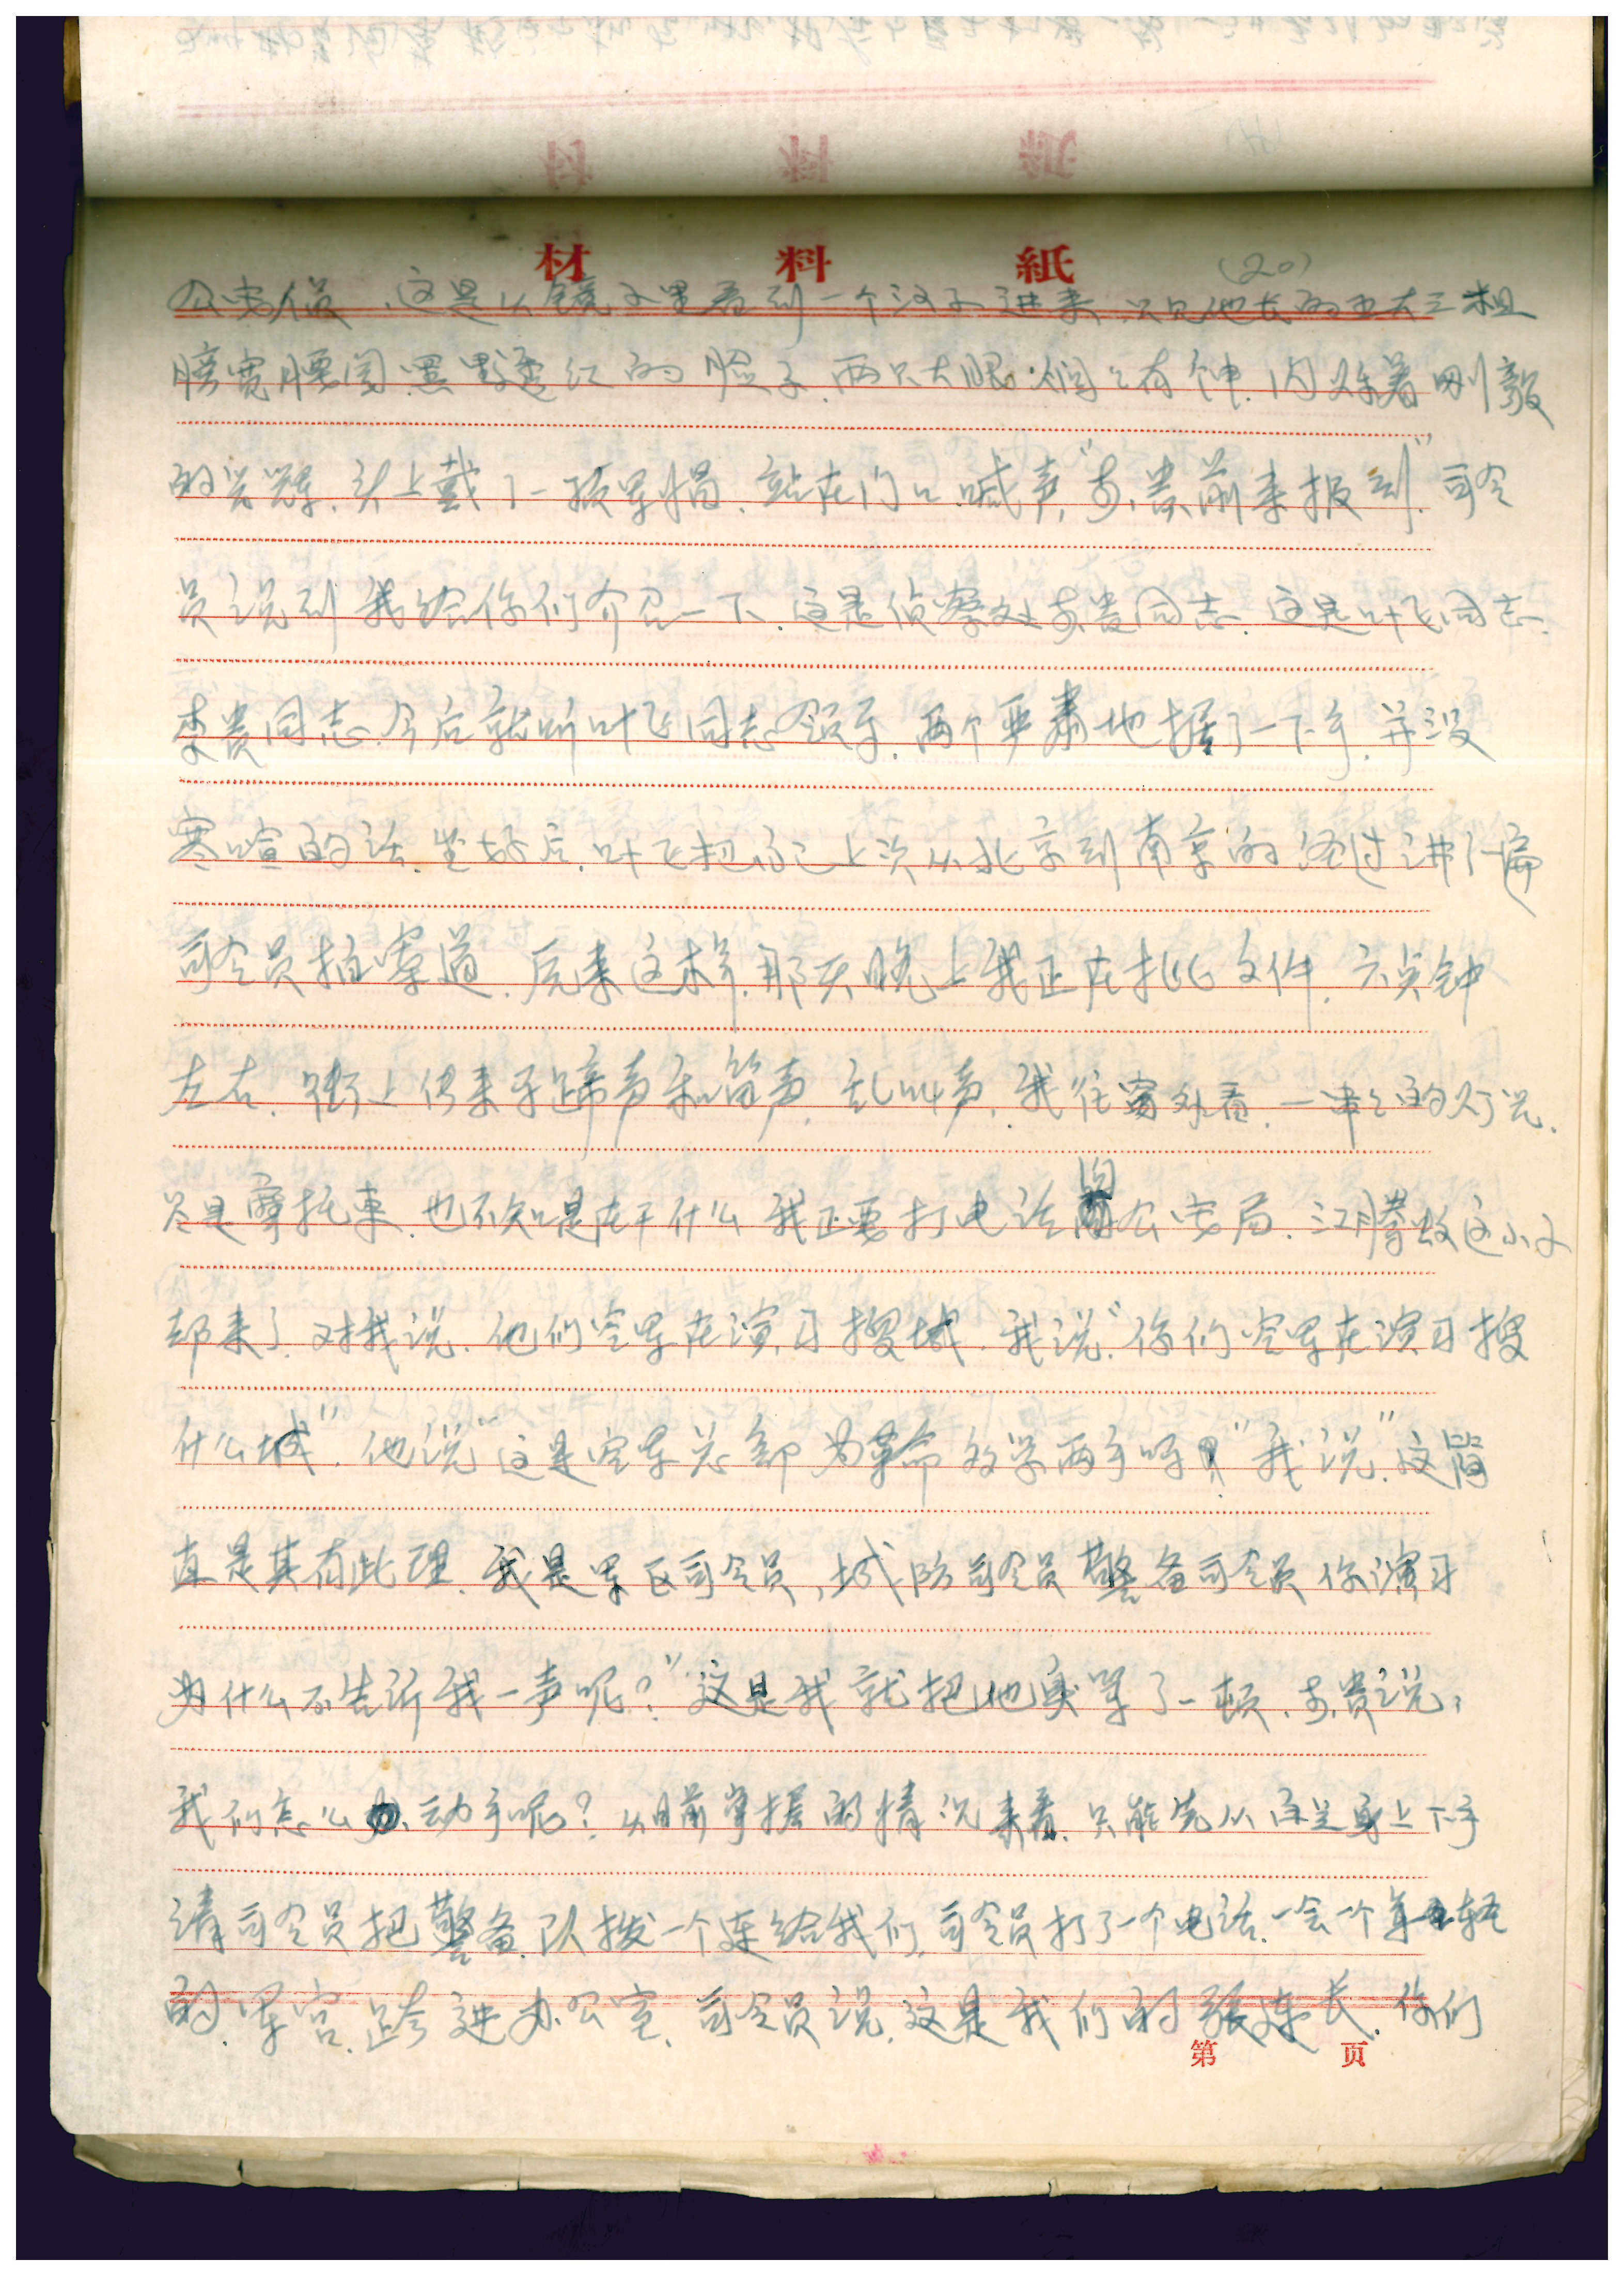 材料紙
(20)
公安人员,这是从镜子里看到一个汉子进来,只见他长的五大三粗
膀宽腰圆,黑黑透红的脸子,两只大眼炯々有神,闪烁着刚毅
的光辉,头上戴了一顶军帽,站在门口喊声,"李贵前来报到",司令
员说到我给你们介召一下,这是侦察处李贵同志,这是叶飞同志.
李贵同志,今后就听叶飞同志领导,两个严肃地握了一下手,并没
寒喧的话,坐好后,叶飞把自己上次从北京到南京的经过讲了一遍
司令员拍案道,原来这样,那天晚上我正在批文件,六点钟
左右,街上传来马蹄声和笛声,乱叫声,我往窗外看,一串々的灯光,
尽是摩托车,也不知是在干什么我正要打电话问公安局,江腾蛟这小子
却来了,对我说,他们空军在演习搜城,我说"你们空军在演习搜
什么城",他说"这是空军总部为革命多学两手呀!"我说",这简
直是其有此理,我是军区司令员,城防司令员警备司令员你演习
为什么不告诉我一声呢?"这是我就把他臭骂了一顿,李贵说:
我们怎么动手呢?从目前掌握的情况来看,只能先从身上下手
请司令员把警备队拨一个连给我们,司令员打了一个电话,一会一个年轻
的军官,跨进办公室,司令员说,这是我们的张连长,你们
第 页